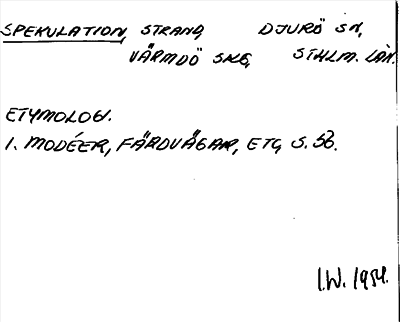 SPEKULATION, STRAND, DJURÖ SN,
VÄRMDÖ SKG, STHLM. LÄN.
ETYMOLOGI.
1. MODÉER, FÄRDVÄGAR, ETC, S. 53.
I.W. 1954.